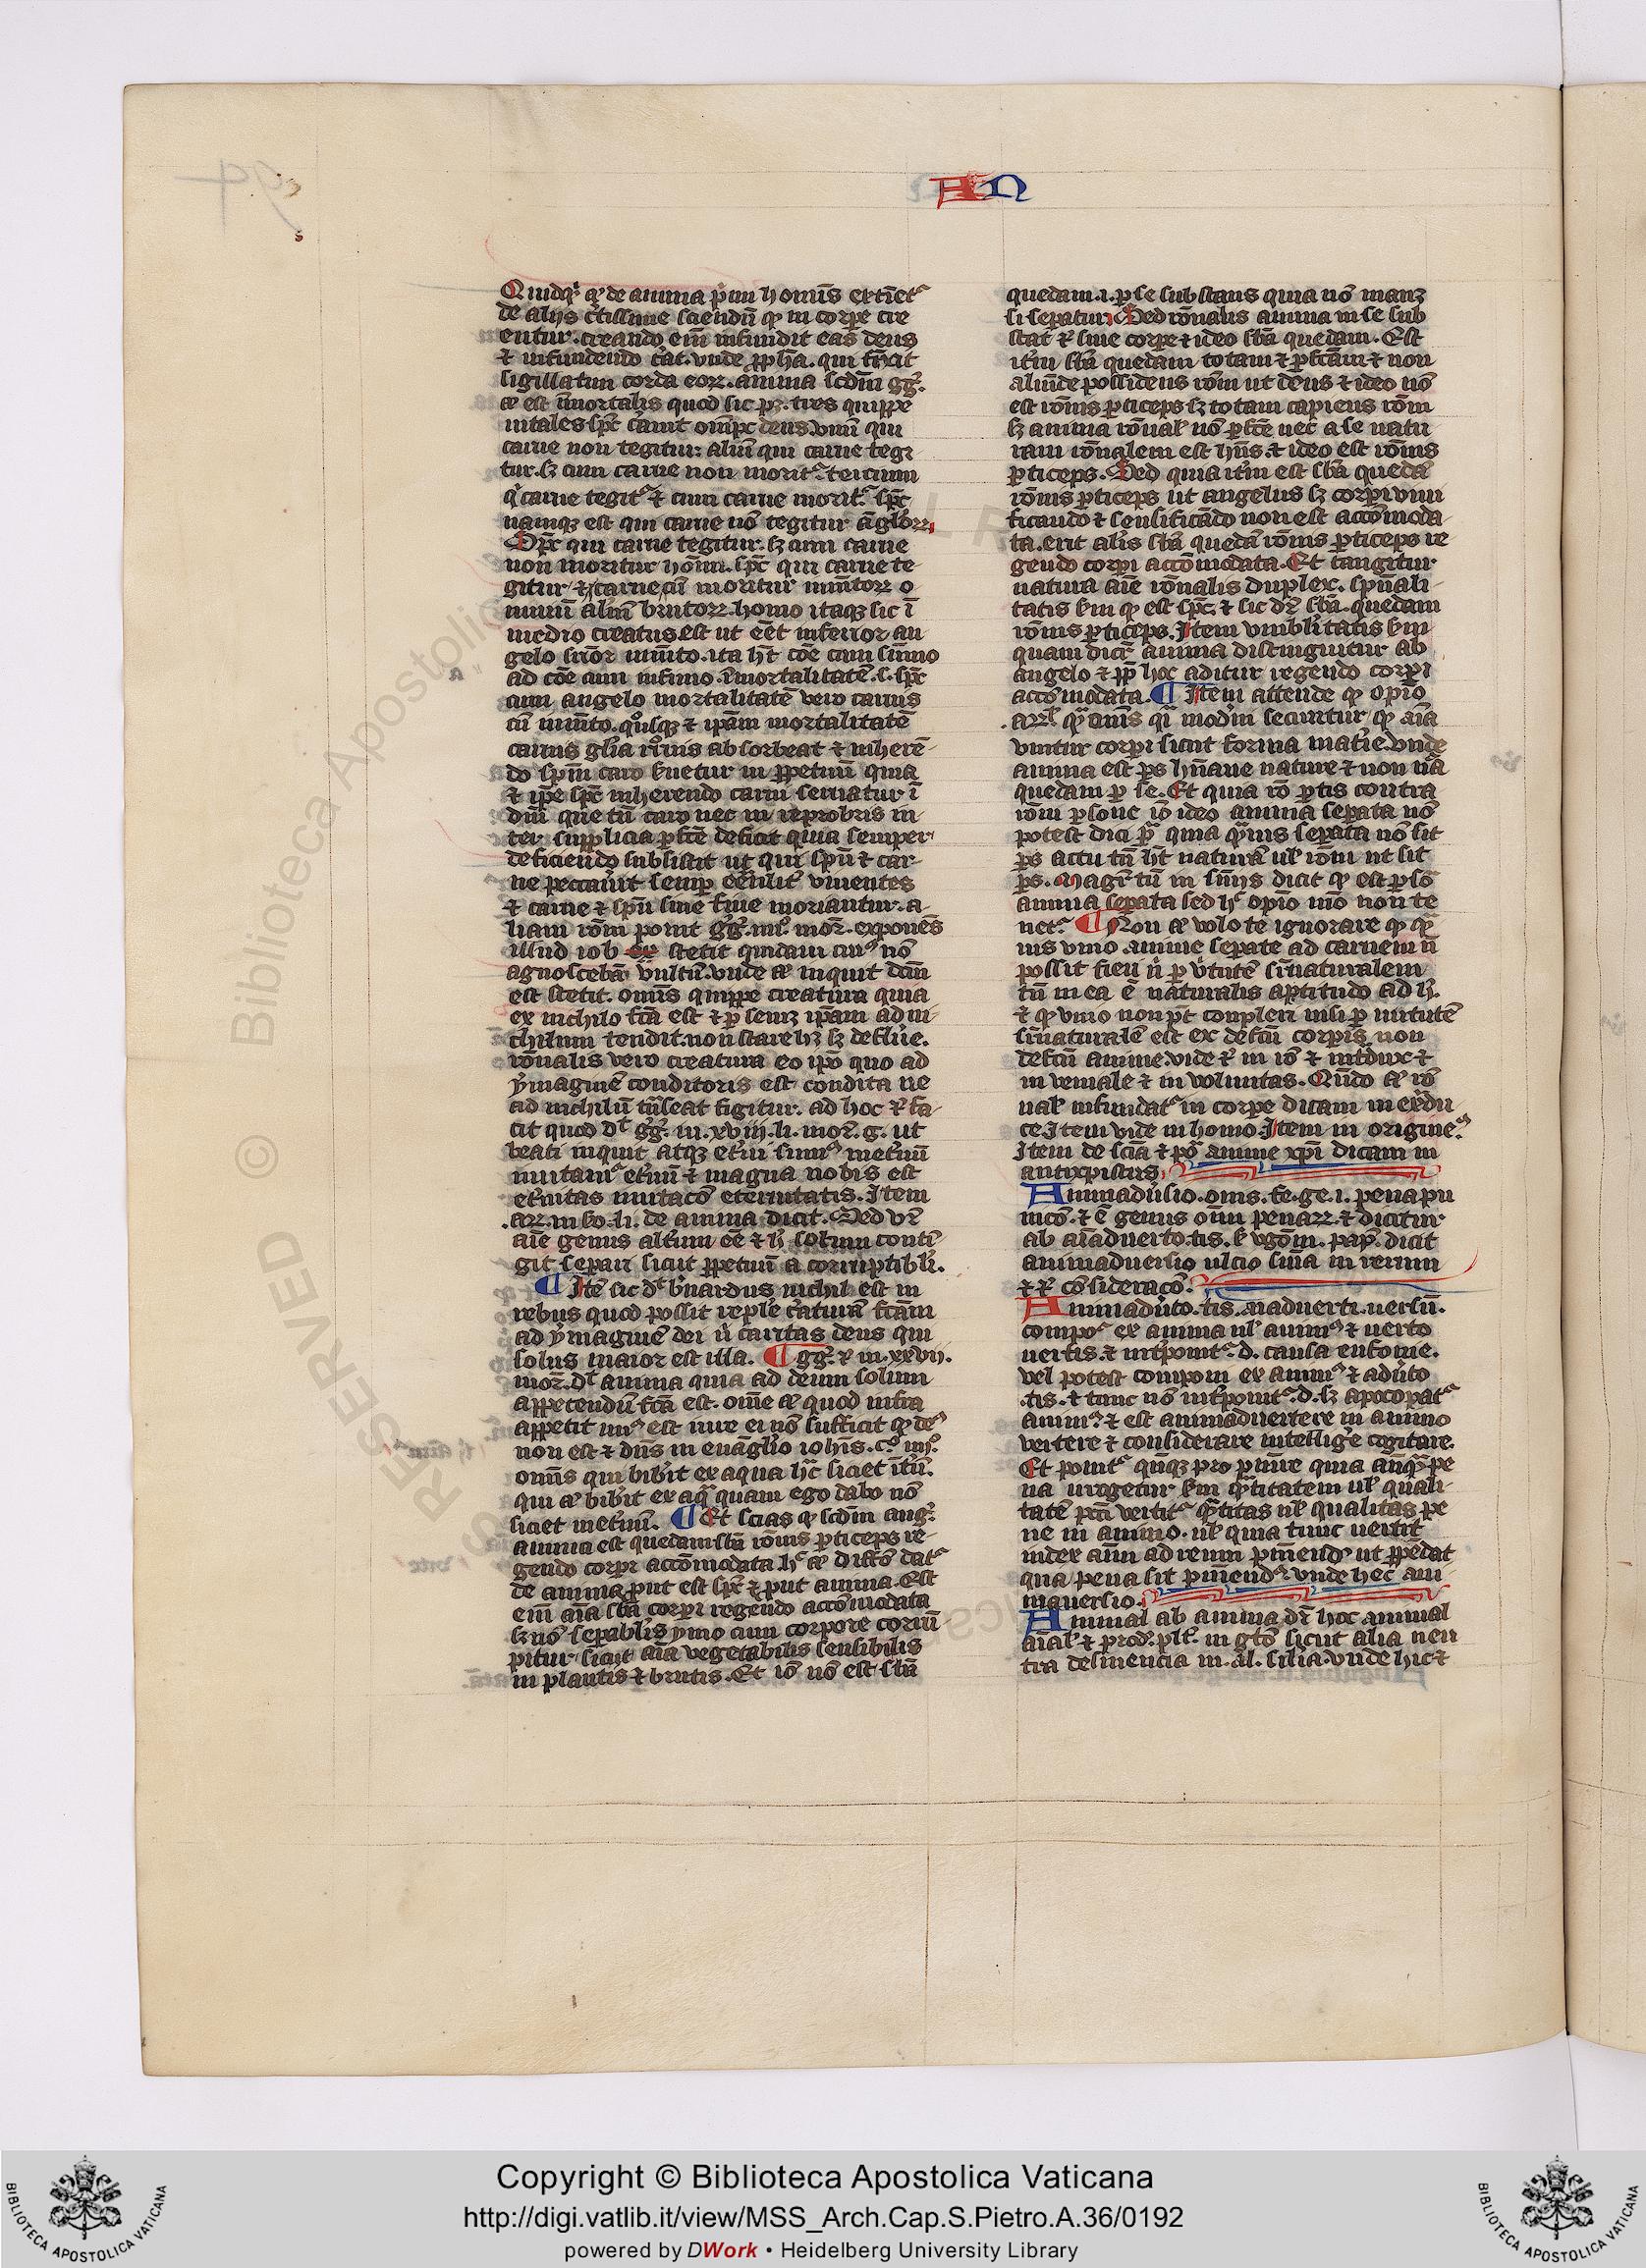 AN
Quidq¹ q' de anima p¹mi hominis extiet᷑
de aliis c̾tissime sciendū ꝙ in corpore cre
entur. creando eni᷑ infundit eas deus
⁊ infundendo c̾at. vnde ꝓph̄a. qui finxit
sigillatim corda eoꝝ. anima scd̄m gg̾.
aū est īmortalis quod sic pꝫ. tres quippe
uitales sp̄c c̾auit om̄pc̄ deus. vnū qui
carne non tegitur. aliū qui carne tegi
tur. sꝫ cum carne non morit᷑. tercium
q¹ carne tegit᷑ ⁊ cum carne morit᷑. sp̄c
namqꝫ est qui carne nō tegitur āgl'oꝝ.
Sp̄c qui carne tegitur. sꝫ cum carne
non moritur hoīm. sp̄c qui carne te
gitur ⁊ carne cū moritur iumtoꝝ o
mniū al'iū brutoꝝ. homo itaqꝫ sic ī
medio creatus est ut eēt inferior an
gelo sup̄ior iumto. ita h̄t cōe cum sūmo
ad cōe cum infimo. īmortalitatē .s. sp̄c
cum angelo mortalitatē vero carnis
cū iumto. q°usqꝫ ⁊ ip̄am mortalitatē
carnis gl̄ia absorbeat ⁊ inherē-
do sp̄ui caro s̾uetur in ꝓpetuū quia
⁊ ip̄e sp̄c inherendo carni seruatur ī
dm̄ que tn̄ caro nec in reprobris in
ter supplicia ꝑfc̄e deficit quia semper
deficiendo subsistit ut qui sp̄u ⁊ car-
ne peccauer̄t semꝑ eēn̄lit̾ viuentes
⁊ carne ⁊ sp̄u sine fine moriantur. a-
liam rōm ponit gg̾. iiii° mor̄. exponēs
illud iob stetit quidam cui⁹ nō
agnoscebā vultū. vnde aū inquit dcm̄
est stetit. om̄is quippe creatura quia
ex nichilo fc̄a est ⁊ ꝑ semꝫ ip̄am ad ni-
chilum tendit. non stare hꝫ sꝫ defl'ue.
rōnalis vero creatura eo ip̄o quo ad
ymaginē conditoris est condita ne
ad nichilū tn̄seat figitur. ad hoc ⁊ fa-
cit quod d̄t gg̾. in .xviii. li. mor̄. g. ut
beati inquit atqꝫ et̾ni sim⁹ metuū
imitam᷑ et̾nū ⁊ magna nobis est
et̾nitas imitacō eternitatis. Item
.ar̄. in ſo. li. de anima dicit. Sed v̄r
aīe genus alt̾um eē ⁊ h̾ solum conti
git separi sicut ꝓpetuū a corruptibl̾i.
¶ Itē sic d̄t b̾nardus nichil est in
rebus quod possit reple c̾aturā fc̄am
ad ymaginē dei ni caritas deus qui
solus maior est illa. ¶ gg̾. ⁊ in .xxvii.
mor̄. d̄t anima quia ad deum solum
appetendū fc̄a est. om̄e aū quod infra
appetit min⁹ est iure ei nō sufficit ꝙ de⁹
non est ⁊ dn̄s in euāglio ioh̄is. c°. iiii°.
om̄is qui bib̾it ex aqua hac siciet it̾ū.
qui aū bib̾it ex aq̄ quam ego dabo nō
siciet inet̾nū. ¶ Et scias ꝙ scd̄m aug̾.
anima est quedam sb̄a rōnis ꝑticeps re-
gendo corpi accōmodata. hᶜ aū diffō dat᷑
de anima put est sp̄c ⁊ put anima. Est
eni᷑ aīa sb̄a corpi regendo accōmodata
sꝫ nō seꝑabl'is ymo cum corpore corrū
pitur sicut aīa vegetabilis sensibilis
in plantis ⁊ brutis. Et iō nō est sb̄a
quedam .i. ꝑ se substans quia nō manꝫ
si seꝑatur. Sed rōnalis anima in se sub
stat ⁊ sine corꝑe ⁊ ideo sb̄a quedam. Est
itm̄ sb̄a quedam totam ⁊ ꝑfc̄am ⁊ non
aliunde possidens rōm ut deus ⁊ ideo nō
est rōnis ꝑticeps sꝫ totam capiens rōm
sꝫ anima rōnal' nō ꝑfc̄e nec a se natu
ram rōnalem est hn̄s. ⁊ ideo est rōnis
ꝑticeps. Sed quia itm̄ est sb̄a quedā
rōnis ꝑticeps ut angelus sꝫ corpi viui
ficando ⁊ sensificādo non est accōmoda-
ta. erit al'is sb̄a quedā rōnis ꝑticeps re
gendo corpi accōmodata. Et tangitur
natura aīe rōnalis duplex. sp̄uali-
tatis s̾m ꝙ est sp̄c ⁊ sic dr̄ sb̄a. quedam
rōnis ꝑticeps. Item vnibl'itatis s̾m
quam dicr̄ anima distinguitur ab
angelo ⁊ ꝓp̄ hoc aditur regendo corpi
accōmodata. ¶ Item attende ꝙ opīo
.ar̄l' qm̄ om̄is q¹ modn̄i secuntur ꝙ aīa
vnitur corpi sicut forma mat̾ie. vnde
anima est ꝑs hu᷑ane nature ⁊ non n̄a
quedam ꝑ se. Et quia rō ꝑtis contra
rōm ꝑsone iō ideo anima seꝑata nō
potest dici ꝑs̄ quia q̄uis seꝑata nō sit
ꝑs actu tn̄ h̄t naturā ul' rōm ut sit
ꝑs. Magr̄ tn̄ in sn̄iis dicit ꝙ est ꝑsō
anima seꝑata sed hᶜ opīo mo non te
net᷑. ¶ Non aū volo te ignorare ꝙ q̄
uis vnio anime seꝑate ad carnem n̄
possit fieri n¹ ꝑ v̾tutē sūnaturalem
tn̄ in ea ē naturalis aptitudo ad h̾.
⁊ ꝙ vnio non pt̄ compleri nisi ꝑ uirtutē
sūnaturalē est ex defc̄u corpis non
defc̄u anime. vide ⁊ in iō ⁊ int̾dux ⁊
in veniale ⁊ in voluntas. Qn̄do aū rō
nal' infundat᷑ in corpe dicam in exdu
ce. Item vide in homo. Item in origine.⁹
Item de scīa ⁊ po⁾ anime xp̄i dicam in
antixpistus.
Animadu̾sio. onis. fe. ge. i. pena pu
nicō. ⁊ ē genus om̄i penaꝝ. ⁊ dicitur
ab aīaduerto. tis. s̾ vgōm. pap̄. dicit
animaduersio ulcio siu᷑a in rerum
⁊ r̾ cōsideracō.
Animadu̾to. tis. maduerti. uersū.
compo᷑ ex anima ul' anim⁹ ⁊ uerto
uertis. ⁊ int̾ponit᷑ .d. causa eufonie.
vel potest componi ex anim⁹ ⁊ adu̾to
.tis. ⁊ tunc nō int̾ponit᷑ .d. sꝫ apocopat᷑
anim⁹. ⁊ est animaduertere in animo
vertere ⁊ considerare intellig̾e cogitare.
Et ponit᷑ qn̄qꝫ pro punire quia anq̄ pe
na irrogetur s̾m q̄titatem ul' quali-
tatē pcc̄i vertit᷑ q̄titas ul' qualitas pe
ne in animo. ul' quia tunc uertit
iudex aīm ad reum puniend̾ ut ꝓpēdat
qua pena sit puniend⁹. vnde hec ani
mauersio.
Animal ab anima dr̄ hoc animal
aīal' ⁊ prod. pl̄t. in gt̄o sicut alia neu
tra desinencia in .al. sil'ia. vnde hic ⁊
Copyright © Biblioteca Apostolica Vaticana
http://digi.vatlib.it/view/MSS_Arch.Cap.S.Pietro.A.36/0192
powered by DWork • Heidelberg University Library
BIBLIOTECA APOSTOLICA VATICANA
BIBLIOTECA APOSTOLICA VATICANA